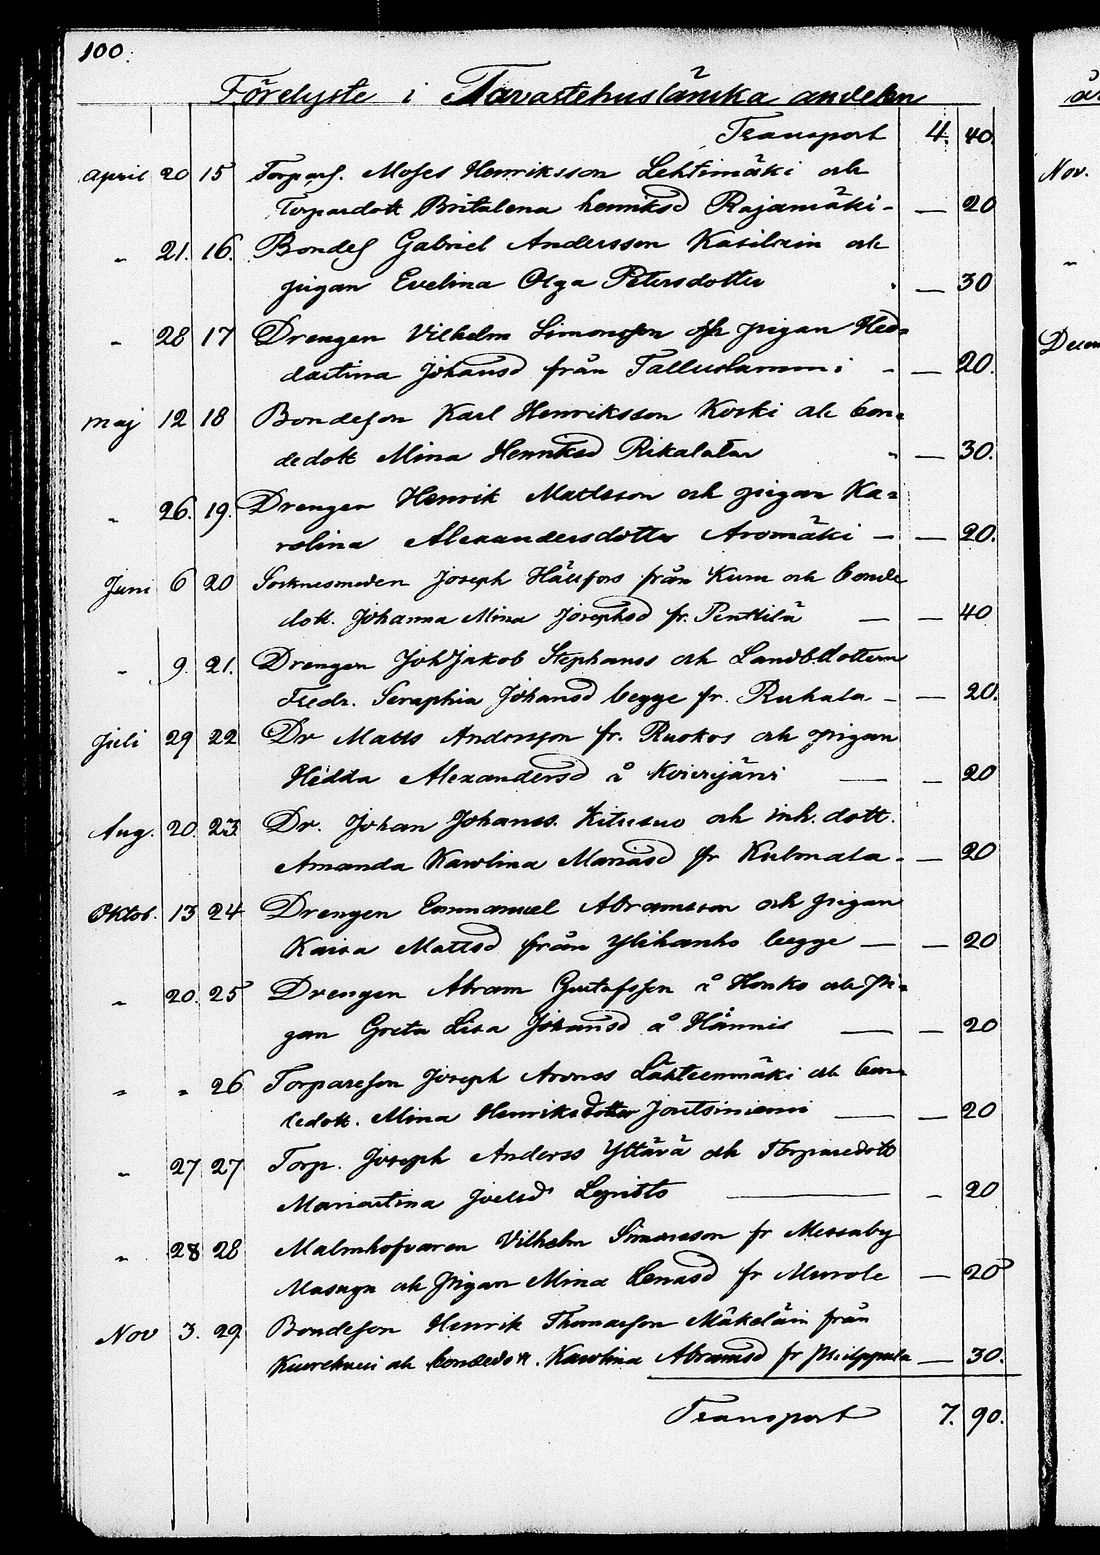 100.
Förelyste i Tavastehuslänska andelen
Transport 4. 40.
April 20 15 Torpars. Moses Henriksson Lehtimäki och
Torparedott Britalena henriksd Rajamäki - — 20
" 21. 16. Bondes Gabriel Andersson Katilain och
pigan Evelina Olga Petersdotter " — 30
" 28 17 Drengen Vilhelm Simonsson och pigan Hed=
dastina Johansd från Talluslammi - — 20.
Maj 12 18 Bondeson Karl Henriksson Koski och bon=
dedott Mina Henriksd Rikalatar " — 30.
" 26. 19. Drengen Henrik Mattsson och pigan Ka=
rolina Alexandersdotter Aromäki — — 20.
Juni 6 20 Socknesmeden Joseph Hällfors från Kum och bonde
dott. Johanna Mina Josephsd fr. Penttilä — — 40
" 9. 21. Drengen Joh Jakob Stephanss och Landb.dottern
Fredr. Seraphia Johansd begge fr. Ruhala - — 20.
Juli 29 22 Dr Matts Andersson fr. Ruokos och pigan
Hedda Alexandersd å Koverjärvi — — 20
Aug. 20. 23 Dr. Johan Johanss. Kitusuo och inh. dott.
Amanda Karolina Mariasd fr Kulmala - — 20
Oktob. 13 24 Drengen Emmanuel Abramsson och pigan
Kaisa Mattsd från Ylihanko begge — — 20
" 20. 25 Drengen Abram Gustafsson å Honko och Pi=
gan Greta Lisa Johansd å Hännis — — 20
" " 26 Torpareson Joseph Aronss Lähteenmäki och bon=
dedott. Mina Henriksdotter Joutsiniemi — — 20
" 27 27 Torp. Joseph Anderss Yttävä och Torparedott
Mariastina Joelsd — — 20
" 28 28 Malmhofvaren Vilhelm Simonsson fr Messaby
Masugn och Pigan Mina Lenasd fr Murole — 20
Nov 3. 29. Bondeson Henrik Thomasson Mäkeläin från
och bondedott. Karolina Abramsd fr Philppula — 30.
Transport 7. 90.
Nov.
"
Decem